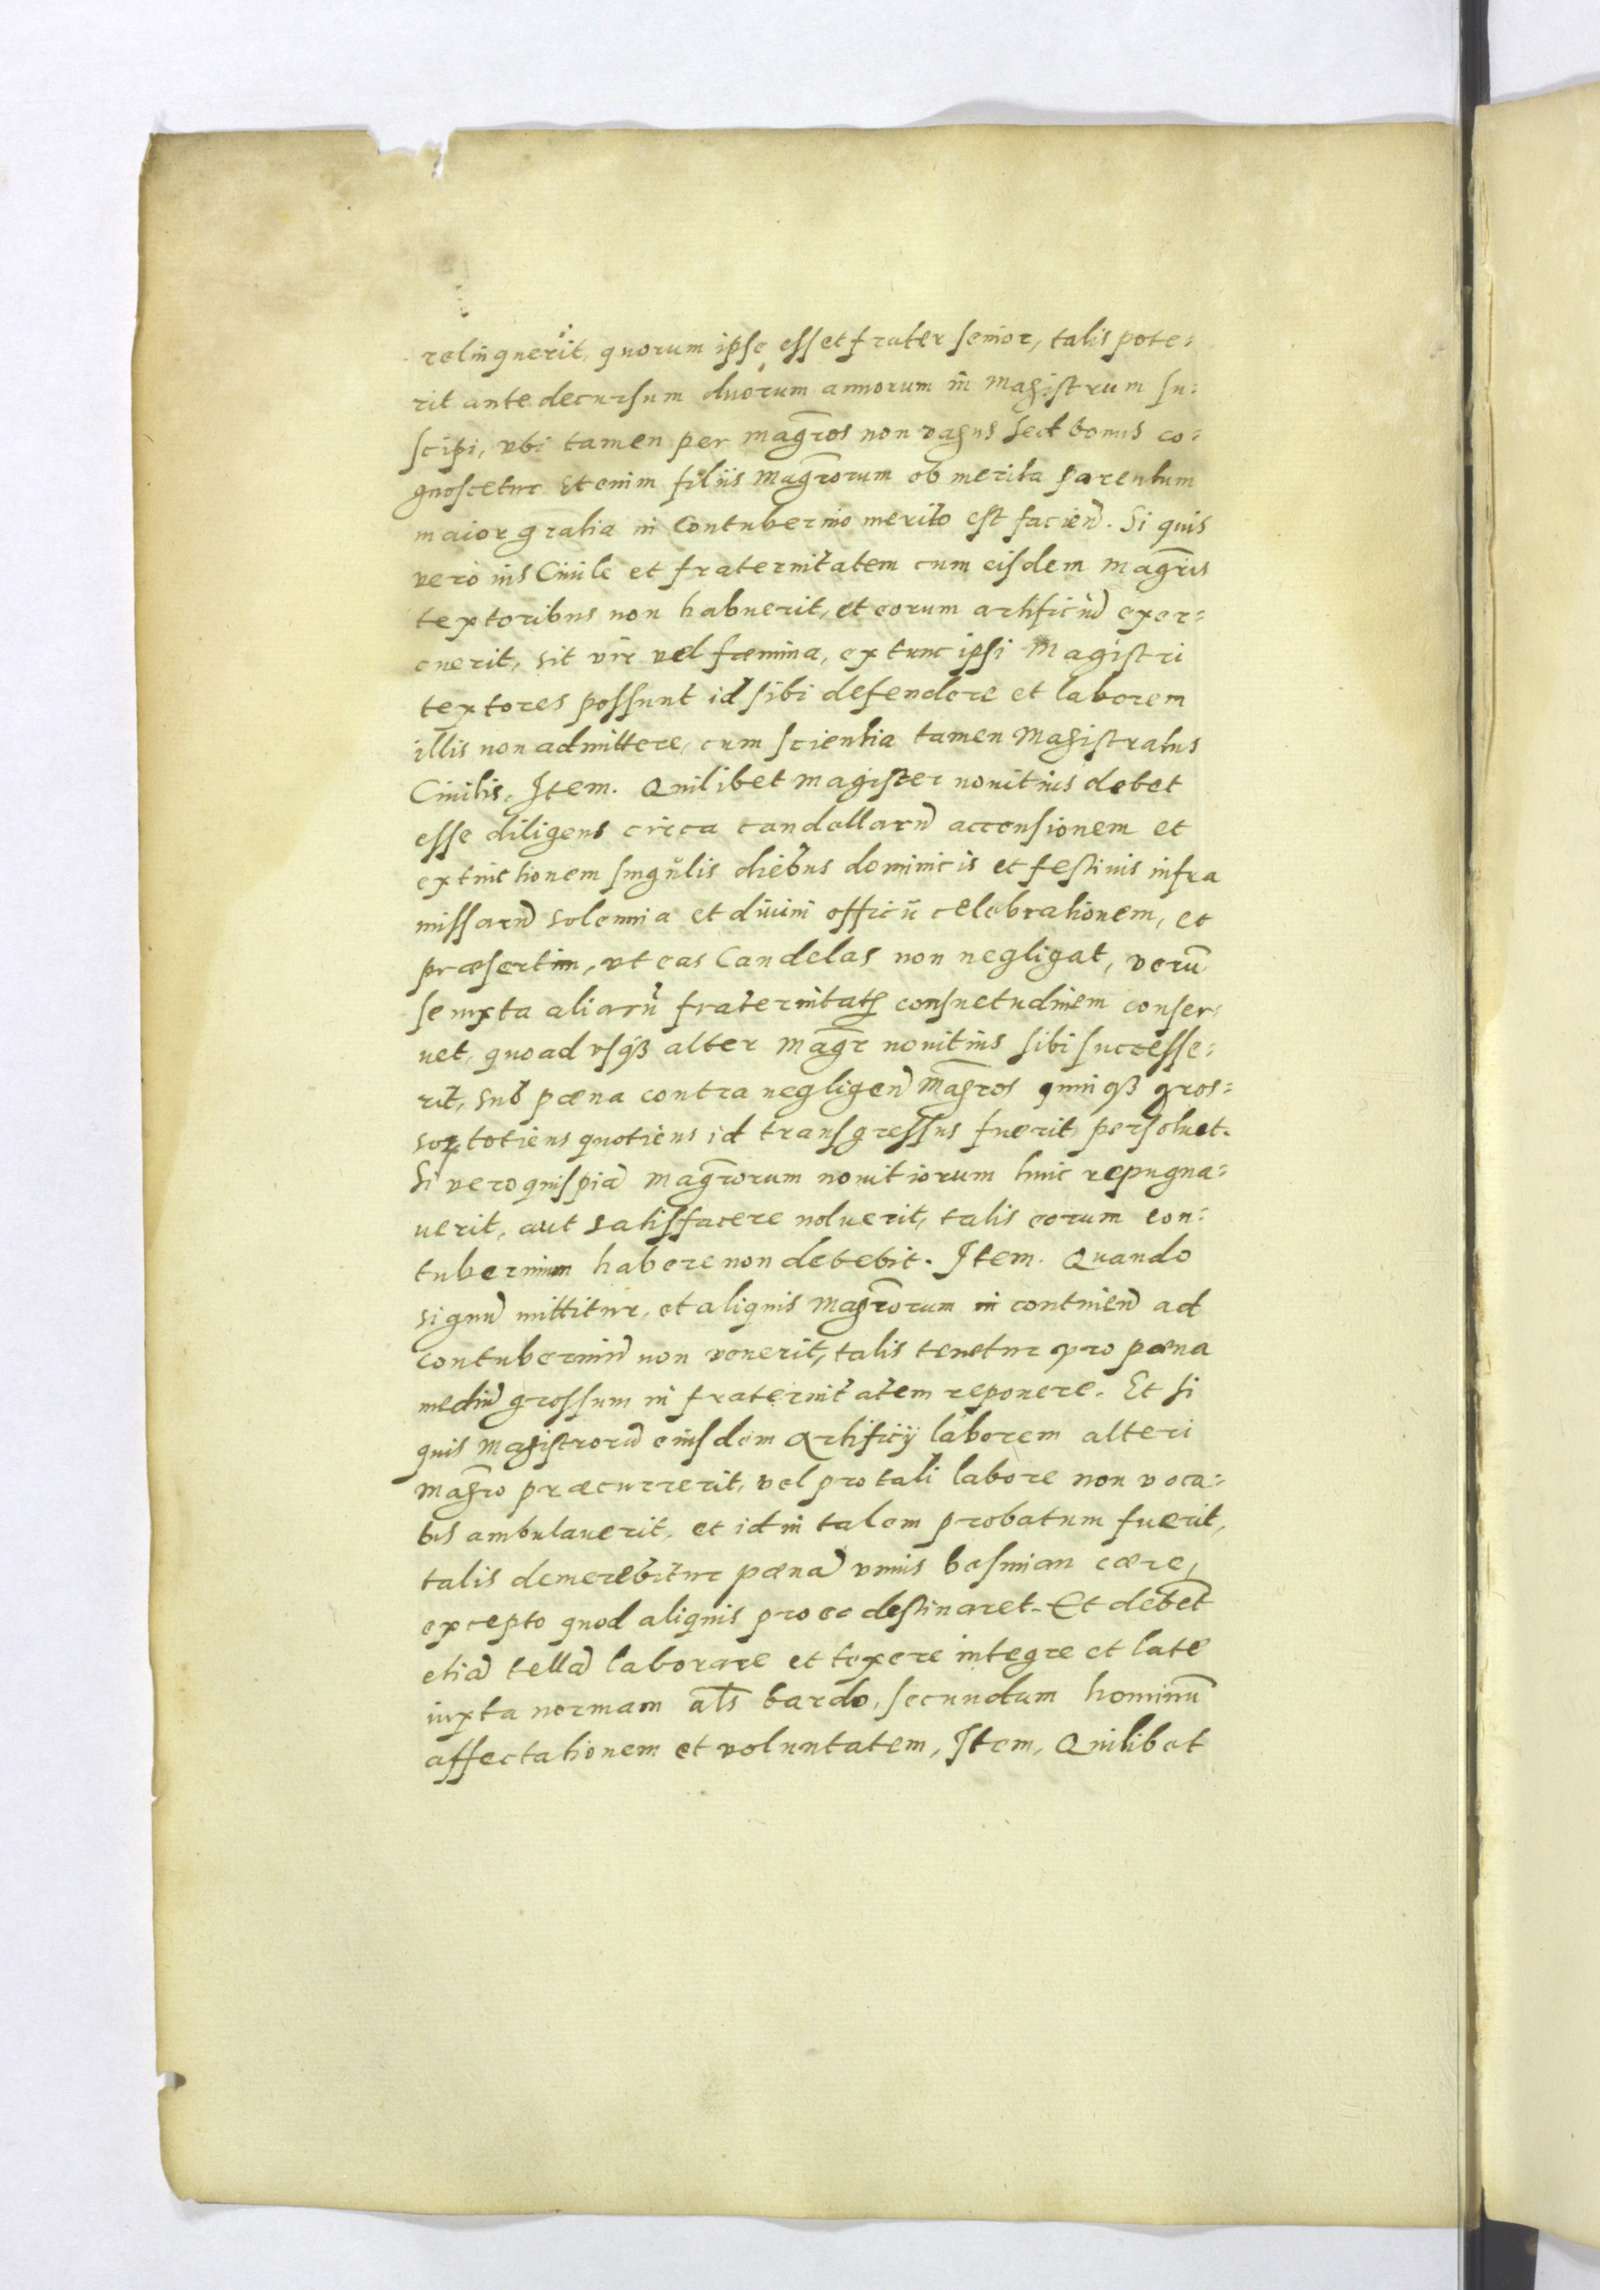 relinquerit, quorum ipse esset frater senior, talis pote=
rit ante decursum duorum annorum in Magistrum su=
scipi, vbi tamen per mag̃ros non vagus sed bonus co=
gnoscetur Etenim filiis Mag̃rorum ob merita parentum
maior gratia in Contubernio merito est faciend̃. Si quis
vero ius Ciuile et fraternitatem cum eisdem mag̃ris
textoribus non habuerit, et eorum artificiũ exer=
cuerit, sit vir vel fæmina, extunc ipsi Magistri
textores possunt id sibi defendere et laborem
illis non admittere, cum scientia tamen Magistratus
Ciuilis. Item. Quilibet magister nouitius debet
esse diligens circa candellarũ accensionem et
extinctionem singulis diebus dominicis et festiuis infra
missarũ solemnia et diuini officii celebrationem, et
præsertim, vt eas Candelas non negligat, verũ
se iuxta aliarũ fraternitatũ consuetudinem conser=
uet, quoad vsq3 alter mag̃r nouitius sibi successe=
rit, sub pæna contra negligen̄ mag̃ros quinq3 gros=
soꝝ totiens quotiens id transgressus fuerit persoluet.
Si vero quispiã Mag̃rorum nouitiorum huic repugna=
uerit, aut satisfacere noluerit, talis eorum con=
tubernium habere non debebit. Item. Quando
signũ mittitur, et aliquis Mag̃rorum in continen̄ ad
contuberniũ non venerit, talis tenetur pro pæna
mediũ grossum in fraternitatem reponere. Et si
quis Magistrorũ eiusdem Artificij laborem alteri
mag̃ro præcurrerit, vel pro tali labore non voca=
tus ambulauerit, et id in talem probatum fuerit,
talis demerebitur pænã vnius besmian cære,
excepto quod aliquis pro eo destinaret. Et debent
etiã tellã laborare et texere integre et late
iuxta normam al̃s bardo, secundum hominũ
affectationem et voluntatem, Item, Quilibet